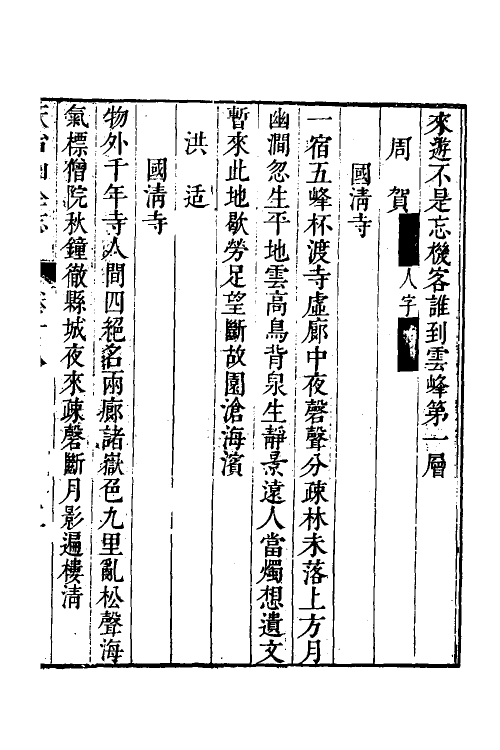 來遊不是忘機客誰到雲峰第一層
周賀 人字
國淸寺
一宿五峰杯渡寺虛廊中夜磬聲分疎林未落上方月
幽澗忽生平地雲高鳥背泉生靜景遠人當燭想遺文
暫來此地歇勞足望斷故園滄海濱
洪适
國淸寺
物外千年寺人間四絕名兩廊諸嶽色九里亂松聲海
氣標僧院秋鐘徹縣城夜來疎磬斷月影遍樓淸